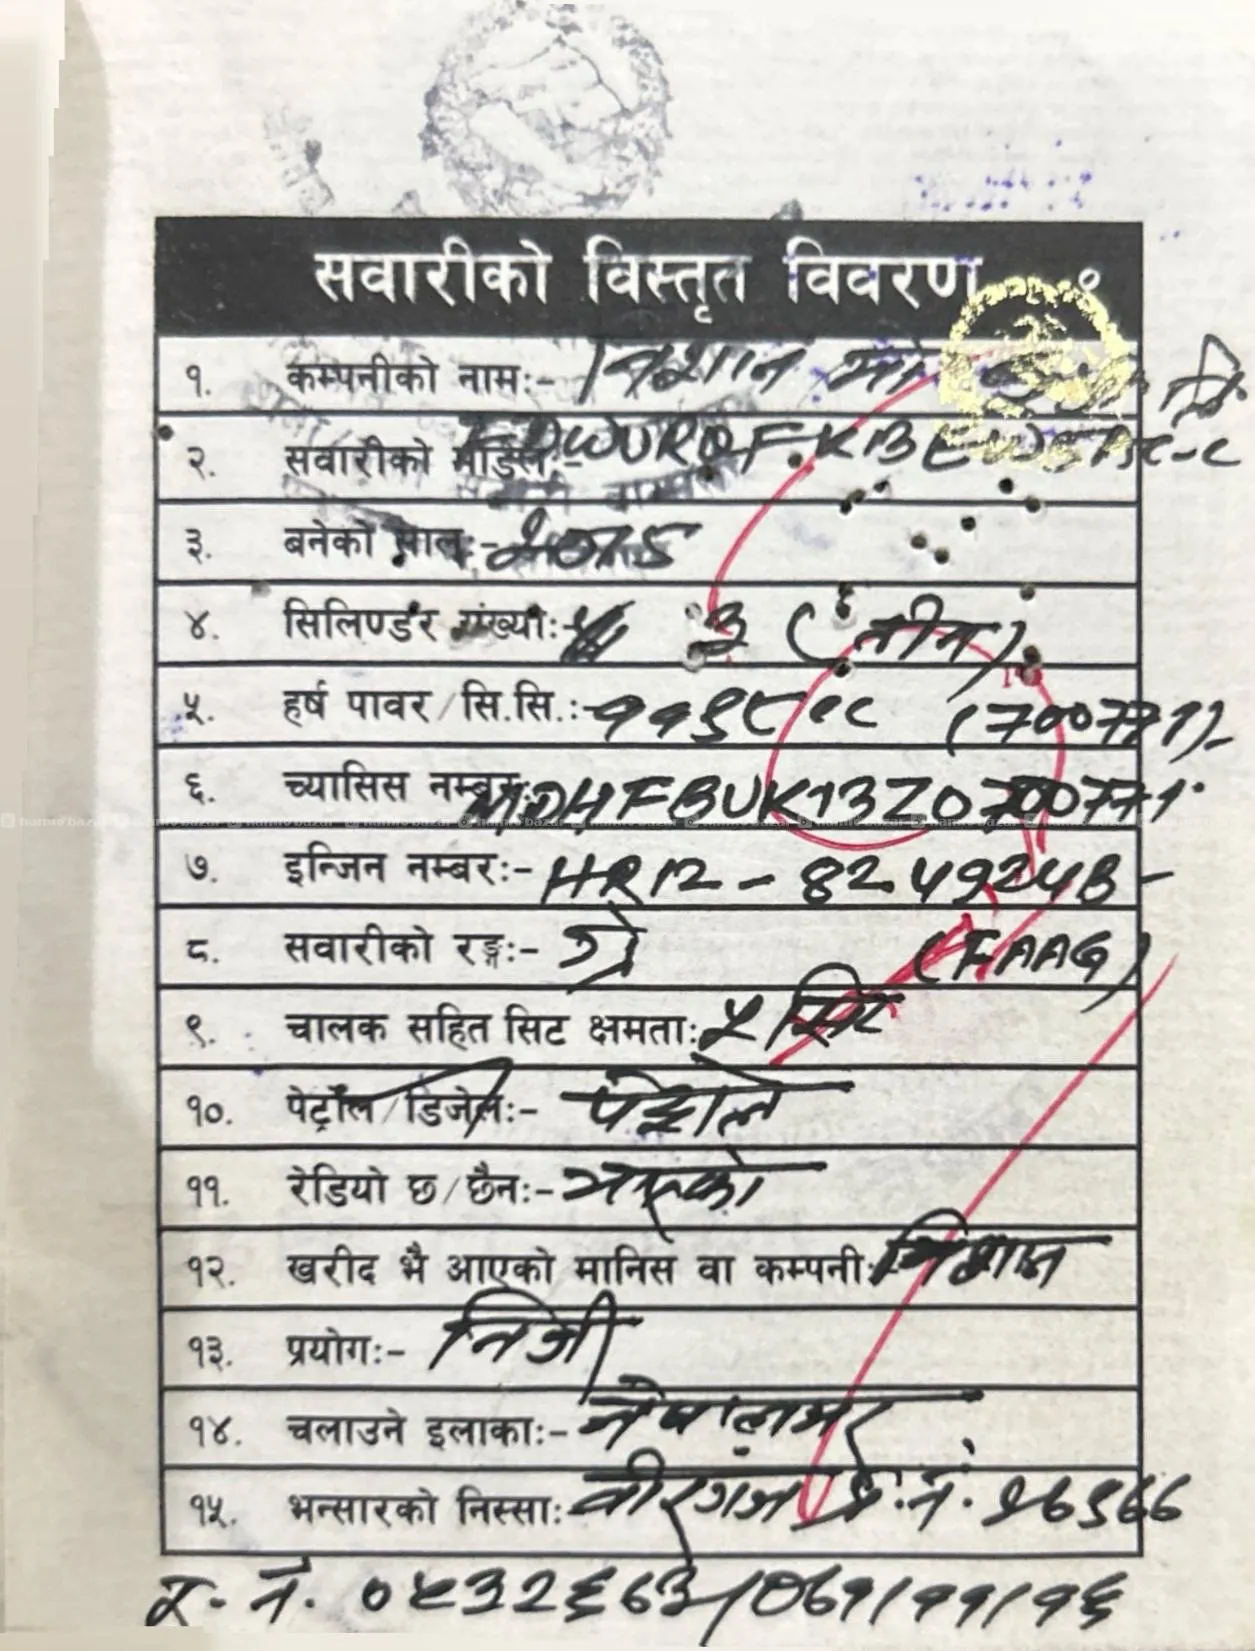 सवारीको विस्तृत विवरण ९
१. कम्पनीको नाम:- निशान मो
२. सवारीको मोडेल:-
३. बनेको साल:- 2015
४. सिलिण्डर संख्या:- 3 (तीन)
५. हर्ष पावर/सि.सि.:- ११९८ cc (700771)-
६. च्यासिस नम्बर:- MDHFBUK13Z0700771
७. इन्जिन नम्बर:- HR12 - 824924B -
८. सवारीको रङ्ग:- ग्रे (FAAG)
९. चालक सहित सिट क्षमता: ५ सिट
१०. पेट्रोल/डिजेल:- पेट्रोल
११. रेडियो छ/छैन:- भएको
१२. खरीद भै आएको मानिस वा कम्पनी:- निशान
१३. प्रयोग:- निजी
१४. चलाउने इलाका:- नेपालभर
१५. भन्सारको निस्सा:- वीरगंज प्र.नं.
र. नं.